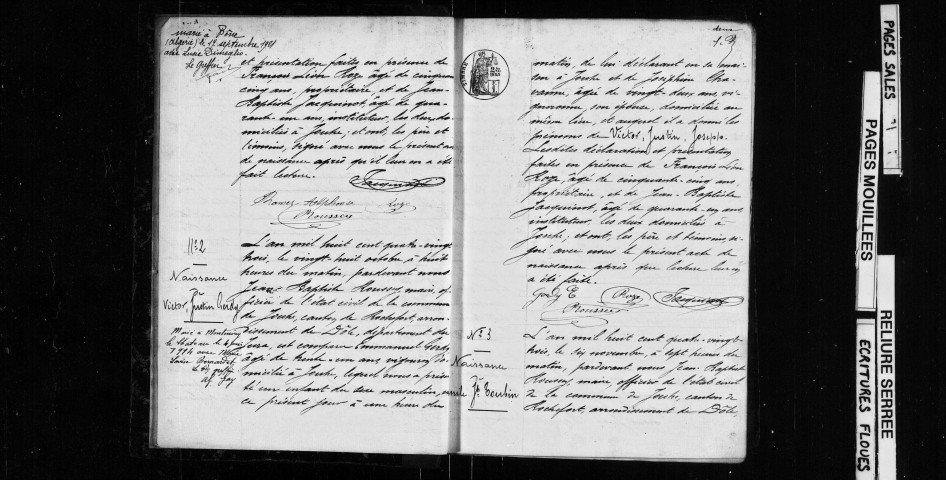 marié à Bône
(Algérie) le 17 septembre 1921
avec Lucie
le greffier
et présentation faites en présence de
François Léon Roze âgé de cinquante
cinq ans, propriétaire, et de Jean-
Baptiste Jacquinot, âgé de qua-
rante un ans, instituteur, les deux do-
miciliés à Jouhe; et ont, les père et
témoins, signé avec nous le présent acte
de naissance après qu'il leur en a été
fait lecture.
Jacquinot
Roze
Rousset
N° 2
Naissance
Victor, Justin
Marié à
le Château le
1914 avec
Louise
Le greffier
L'an mil huit cent quatre-vingt
trois, le vingt huit octobre à huit
heures du matin, pardevant nous
Jean Baptiste Rousset, maire, of-
ficier de l'état civil de la commune
de Jouhe, canton de Rochefort, arron-
dissement de Dôle, département du
Jura, est comparu Emmanuel
âgé de trente-un ans, vigneron do-
micilié à Jouhe, lequel nous a présen-
té un enfant du sexe masculin, né
ce présent jour à une heure du
deux
matin, de lui déclarant en sa mai-
son à Jouhe et de Joséphine Cha-
vanne, âgée de vingt-deux ans, vi-
gneronne, son épouse, domiciliée au
même lieu, et auquel il a donné les
prénoms de Victor, Justin, Joseph.
Lesdites déclaration et présentation
faites en présence de François Léon
Roze, âgé de cinquante-cinq ans,
propriétaire, et de Jean-Baptiste
Jacquinot, âgé de quarante un ans,
instituteur, les deux domiciliés à
Jouhe; et ont, les père et témoins, si-
gné avec nous le présent acte de
naissance après que lecture leur en
a été faite.
Roze
Jacquinot
Rousset
N° 3
Naissance
L'an mil huit cent quatre-vingt-
trois, le six novembre, à sept heures du
matin, pardevant nous Jean-Baptiste
Rousset, maire officier de l'état civil
de la commune de Jouhe, canton de
Rochefort, arrondissement de Dôle,
PAGES SALES
PAGES MOUILLÉES
RELIURE SERRÉE
ECRITURES FLOUES